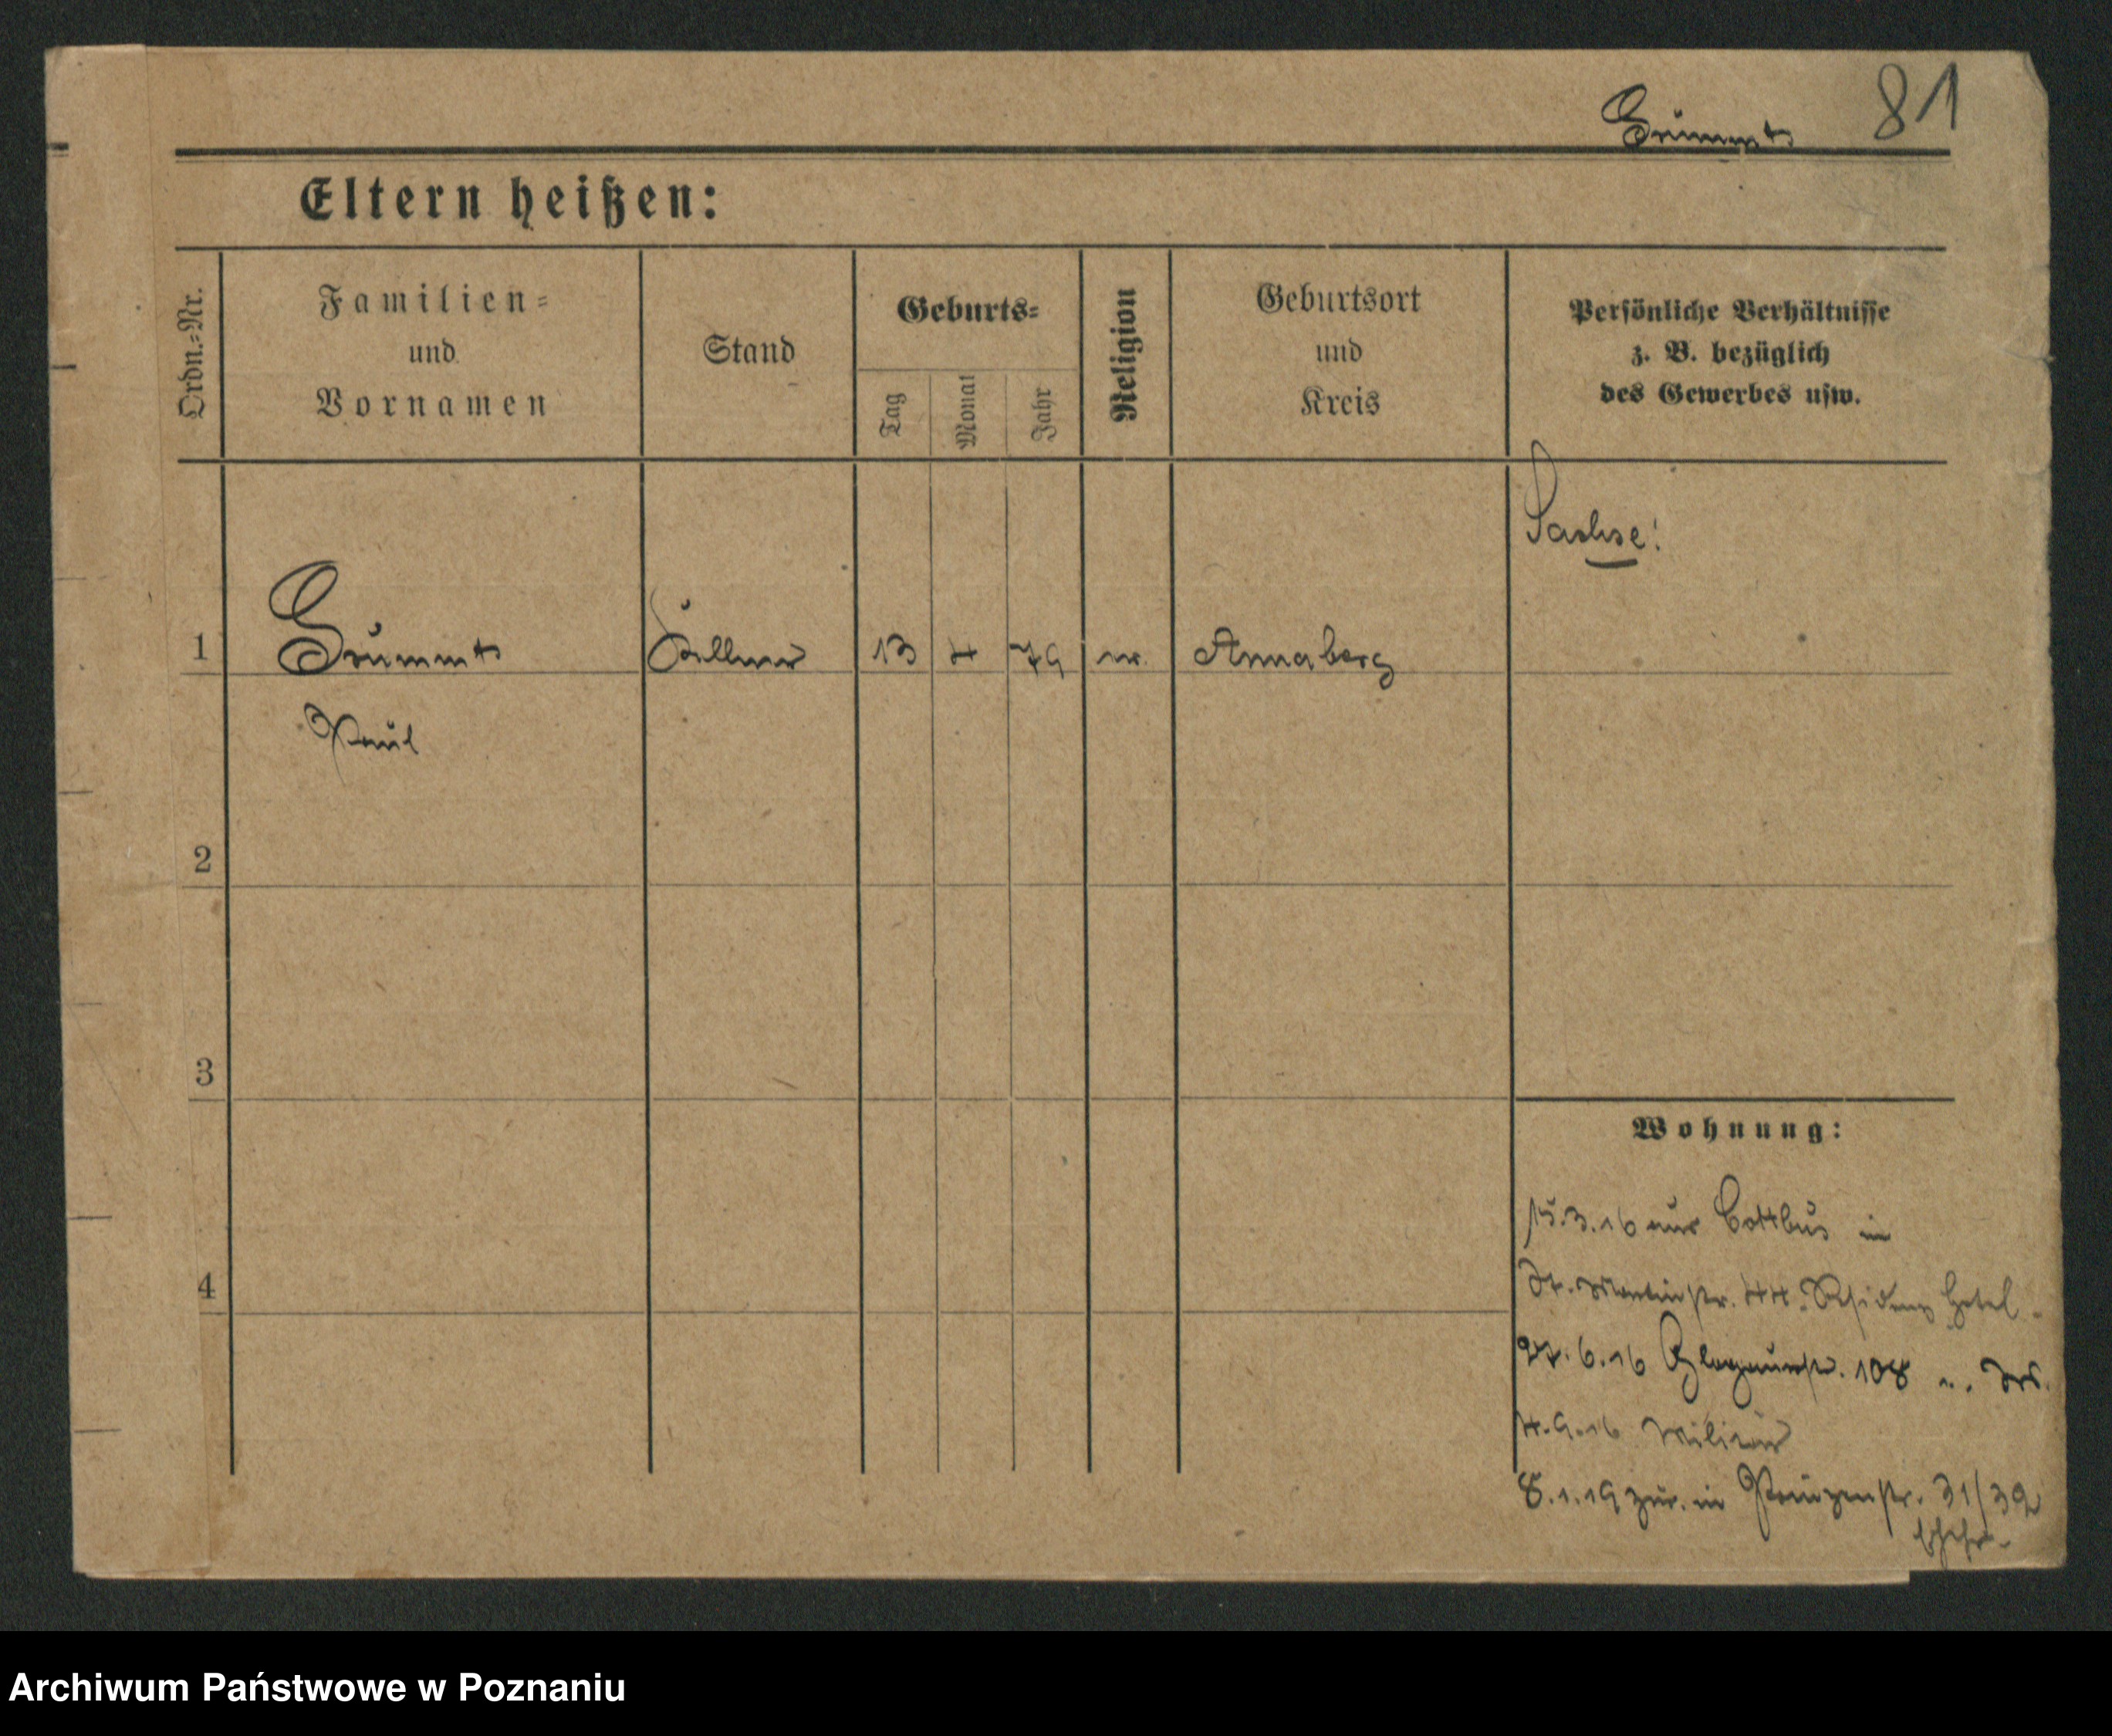 Grummt 81
Eltern heißen:
Ordn.-Nr.
Familien-
und
Vornamen
Stand
Geburts-
Tag
Monat
Jahr
Religion
Geburtsort
und
Kreis
Persönliche Verhältnisse
z. B. bezüglich
des Gewerbes usw.
Sachse!
1 Grummt Kellner 13 4 79 ev. Annaberg
Paul
2
3
4
Wohnung:
15.3.16 aus Cottbus in
St. Martinstr. 44. Residenz Hotel
27.6.16 Glogauerstr. 108
4.9.16 Militär
8.1.19 zur. in Prinzenstr. 31/32
Archiwum Państwowe w Poznaniu